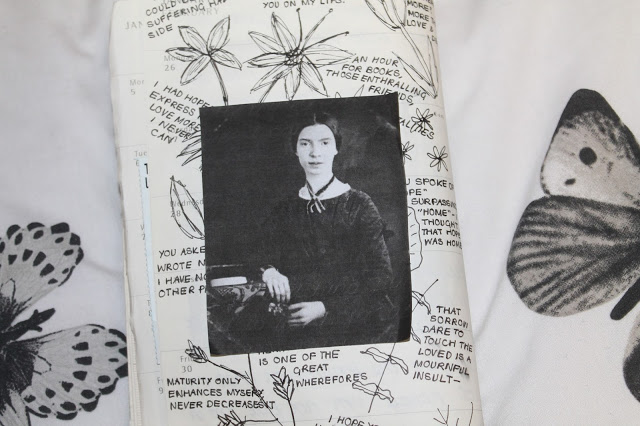 COULD BE
SUFFERING HAS
SIDE
YOU ON MY LIPS.
MORE
MORE
LOVE &
26
5
I HAD HOPE
EXPRESS
LOVE MORE
I NEVER
CAN
AN HOUR
FOR BOOKS,
THOSE ENTHRALLING
FRIENDS,
28
YOU ASKE
WROTE N
I HAVE NO
OTHER P
YOU SPOKE O
SURPASSING
"HOME" -
THOUGHT
THAT HOPE
WAS HOME
THAT
SORROW
DARE TO
TOUCH THE
LOVED IS A
MOURNFUL
INSULT—
30
9
IS ONE OF THE
GREAT
WHEREFORES
MATURITY ONLY
ENHANCES MYSERY,
NEVER DECREASES IT
I HOPE